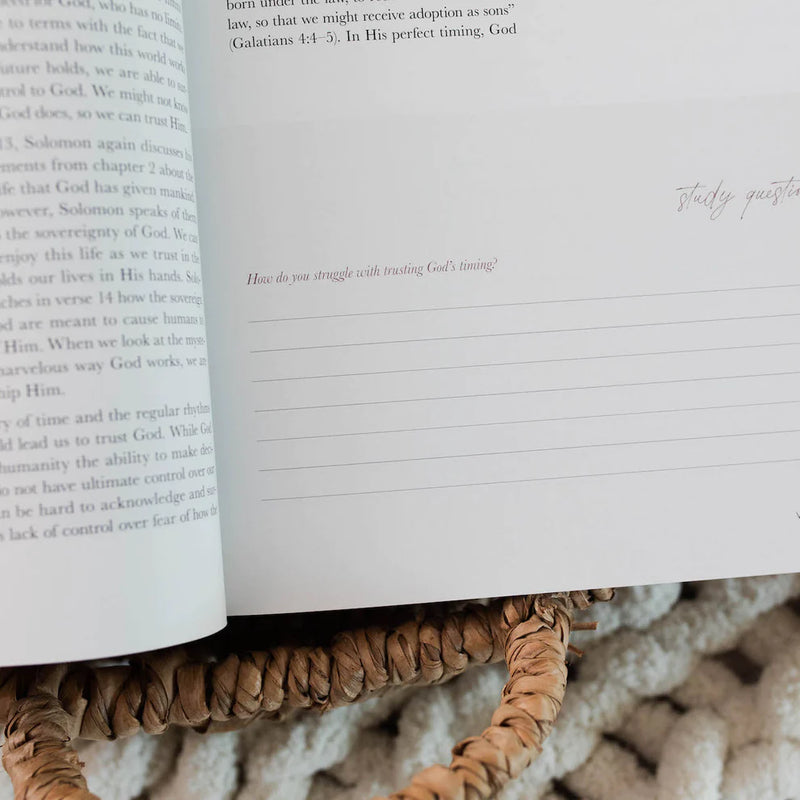 for God, who has no limits
to terms with the fact that we
understand how this world works
future holds, we are able to
control to God. We might not know
God does, so we can trust Him.
13, Solomon again discusses his
from chapter 2 about the
life that God has given mankind
However, Solomon speaks of them
the sovereignty of God. We can
enjoy this life as we trust in the
holds our lives in His hands.
in verse 14 how the
are meant to cause humans
Him. When we look at the
marvelous way God works, we
Him.
of time and the regular rhythms
lead us to trust God. While God
humanity the ability to make
do not have ultimate control over our
can be hard to acknowledge and
lack of control over fear of how the
born under the law, to
law, so that we might receive adoption as sons”
(Galatians 4:4–5). In His perfect timing, God
study
How do you struggle with trusting God's timing?